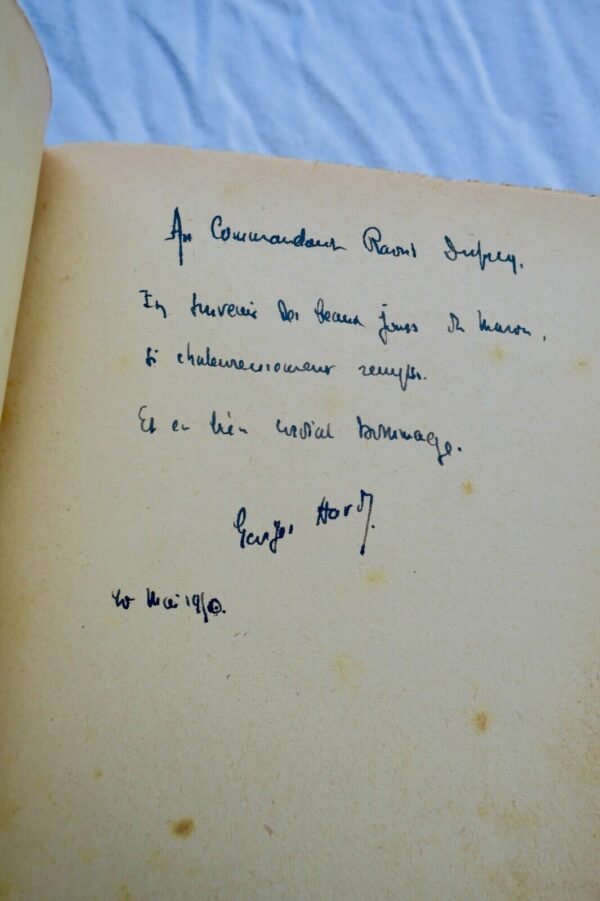 Au Commandant Raoul Dupuy.
En souvenir des beaux jours du Maroc,
si chaleureusement remplis.
Et en bien cordial hommage.
Georges Hardy.
Mai 19